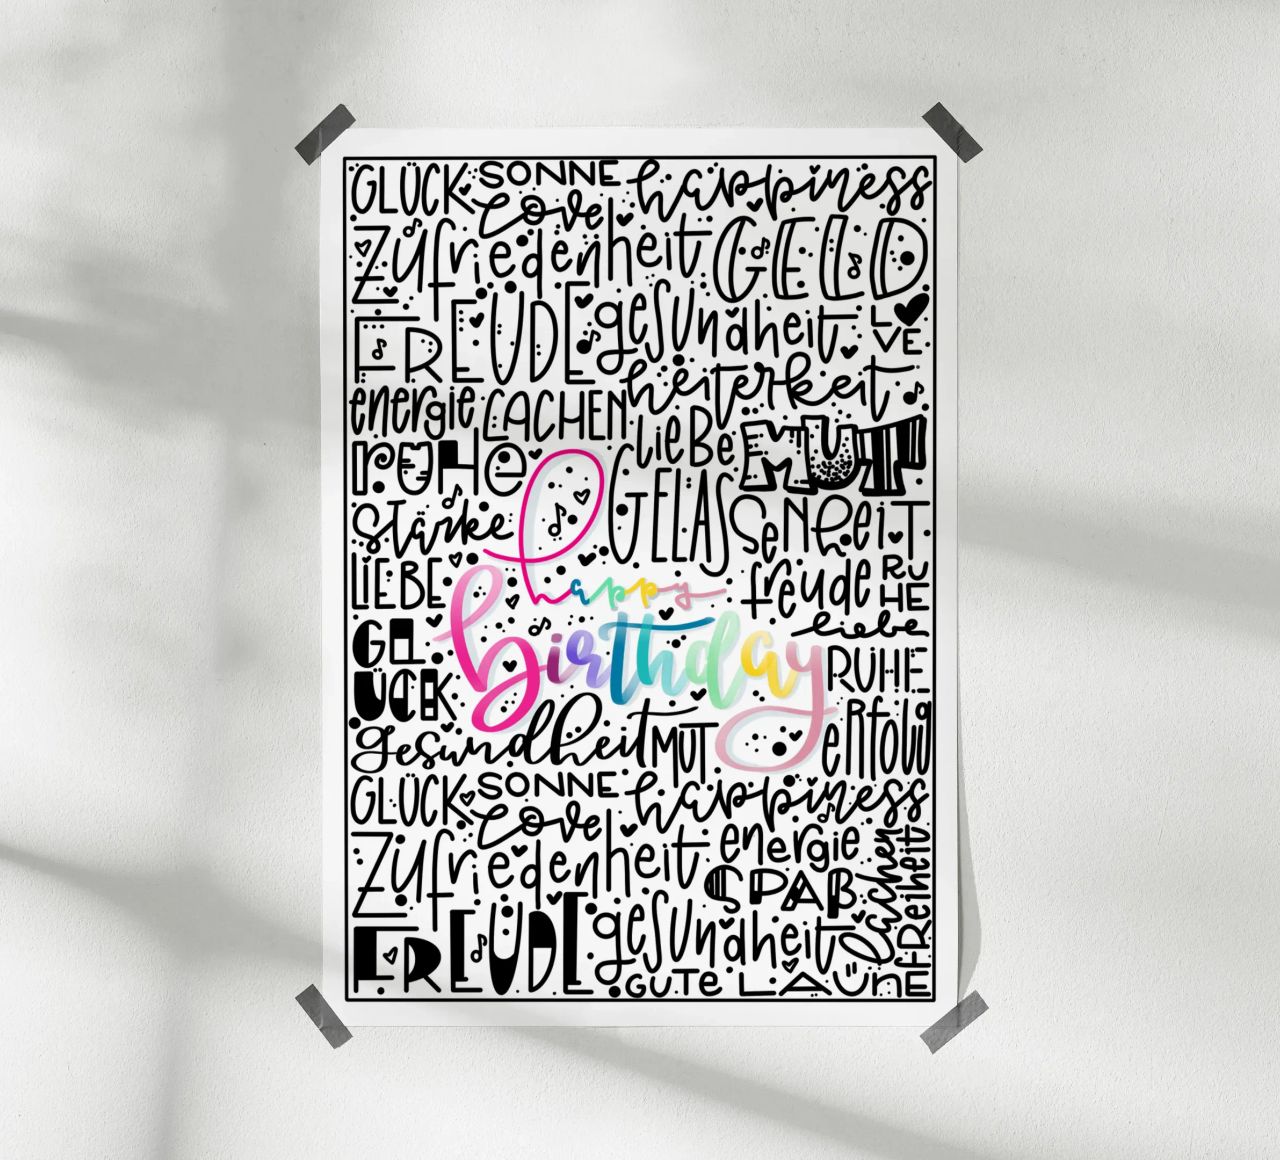 GLÜCK SONNE happiness
love
Zufriedenheit GELD
FREUDE gesundheit LOVE
heiterkeit
energie LACHEN LIEBE MUT
RUHE
GELASSENHEIT
stärke
LIEBE happy freude RUHE
liebe
GLÜCK birthday RUHE
gesundheit MUT erfolg
GLÜCK SONNE happiness
love
Zufriedenheit energie lachen FREIHEIT
SPAß
FREUDE gesundheit
GUTE LAUNE